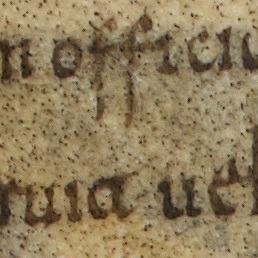 n officiu
ruia uel